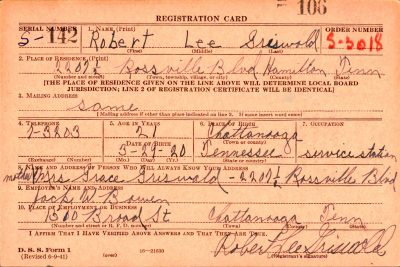 106
REGISTRATION CARD
SERIAL NUMBER 1. NAME (Print) ORDER NUMBER
S-142 Robert Lee Griswold S-3018
(First) (Middle) (Last)
2. PLACE OF RESIDENCE (Print)
2209½ Rossville Blvd Hamilton Tenn
(Number and street) (Town, township, village, or city) (County) (State)
[THE PLACE OF RESIDENCE GIVEN ON THE LINE ABOVE WILL DETERMINE LOCAL BOARD
JURISDICTION; LINE 2 OF REGISTRATION CERTIFICATE WILL BE IDENTICAL]
3. MAILING ADDRESS
Same
[Mailing address if other than place indicated on line 2. If same insert word same]
4. TELEPHONE 5. AGE IN YEARS 6. PLACE OF BIRTH 7. OCCUPATION
7-3803 21 Chattanooga
DATE OF BIRTH (Town or county)
Tennessee service station
(Exchange) (Number) (Mo.) (Day) (Yr.) (State or country)
8. NAME AND ADDRESS OF PERSON WHO WILL ALWAYS KNOW YOUR ADDRESS
mother Mrs. Grace Griswold - 2209½ Rossville Blvd
9. EMPLOYER'S NAME AND ADDRESS
Jack W. Bowen
10. PLACE OF EMPLOYMENT OR BUSINESS
1500 Broad St Chattanooga Tenn
(Number and street or R. F. D. number) (Town) (County) (State)
I AFFIRM THAT I HAVE VERIFIED ABOVE ANSWERS AND THAT THEY ARE TRUE.
D. S. S. Form 1 Robert Lee Griswold
(Revised 6-9-41) 16-21630 (Registrant's signature)